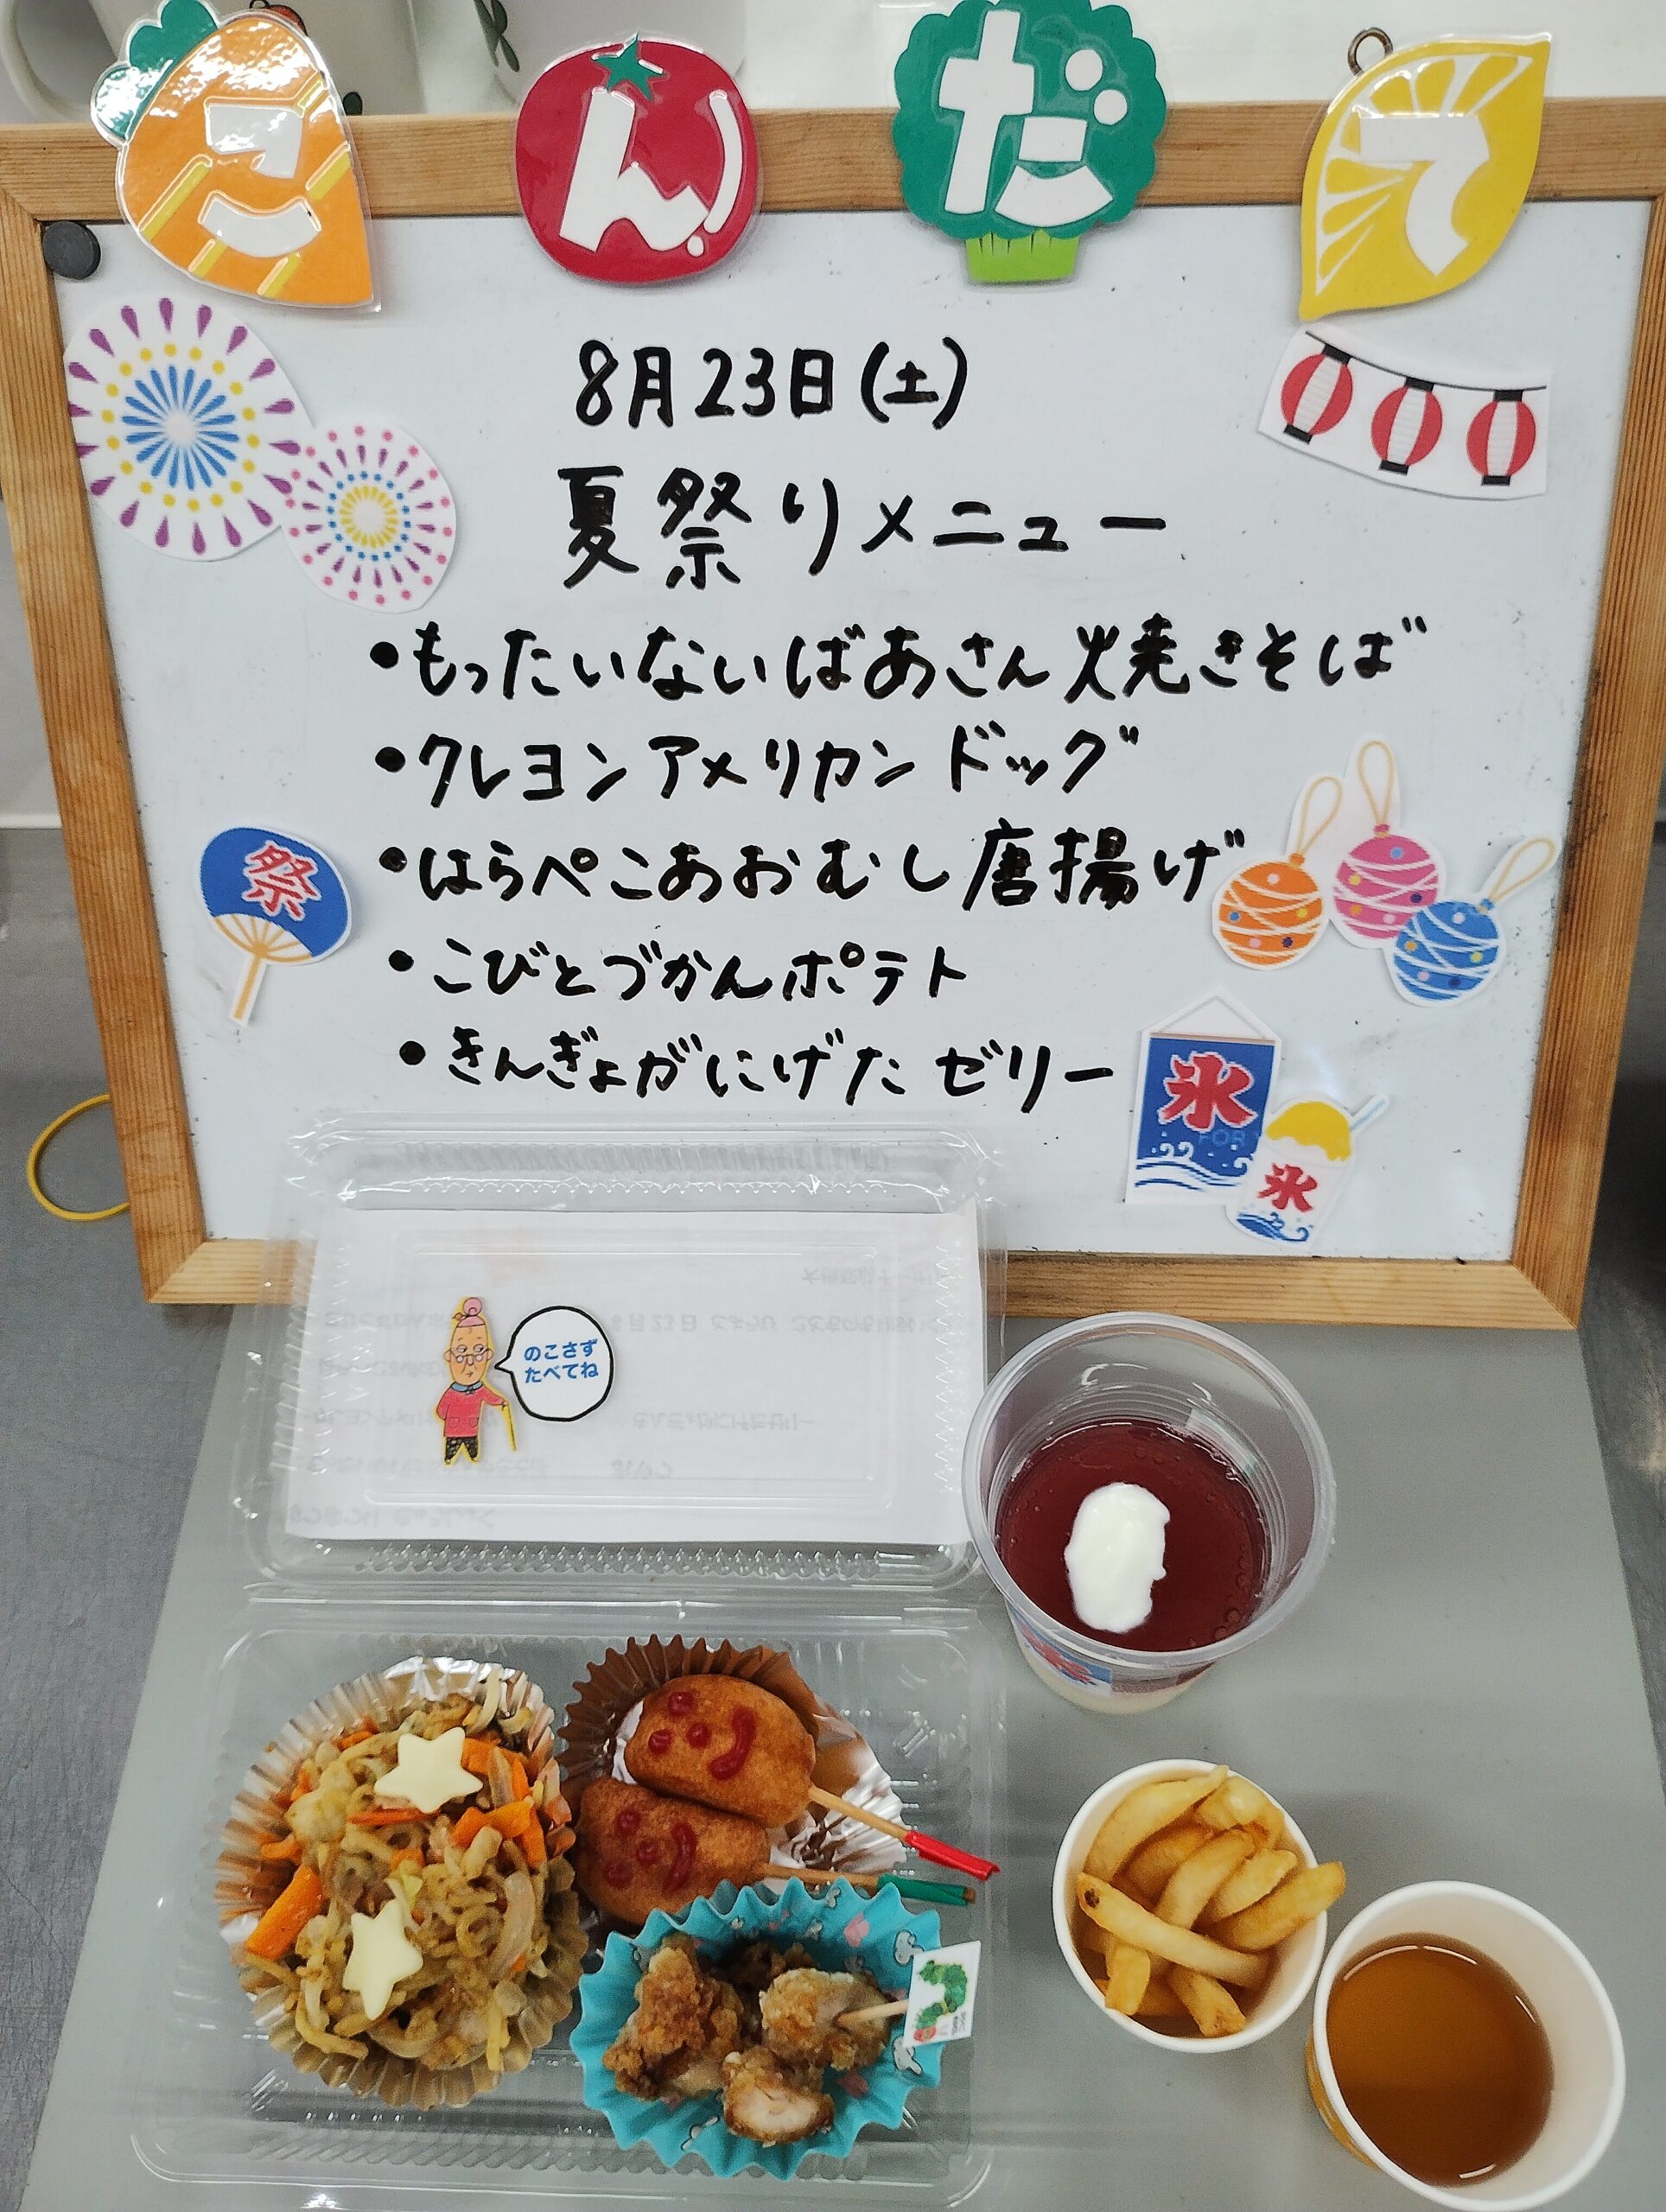 こんだて
8月23日(土)
夏祭りメニュー
•もったいないばあさん焼きそば
•クレヨンアメリカンドッグ
•はらぺこあおむし唐揚げ
祭
•こびとづかんポテト
•きんぎょがにげたゼリー
氷
氷
のこさず
たべてね